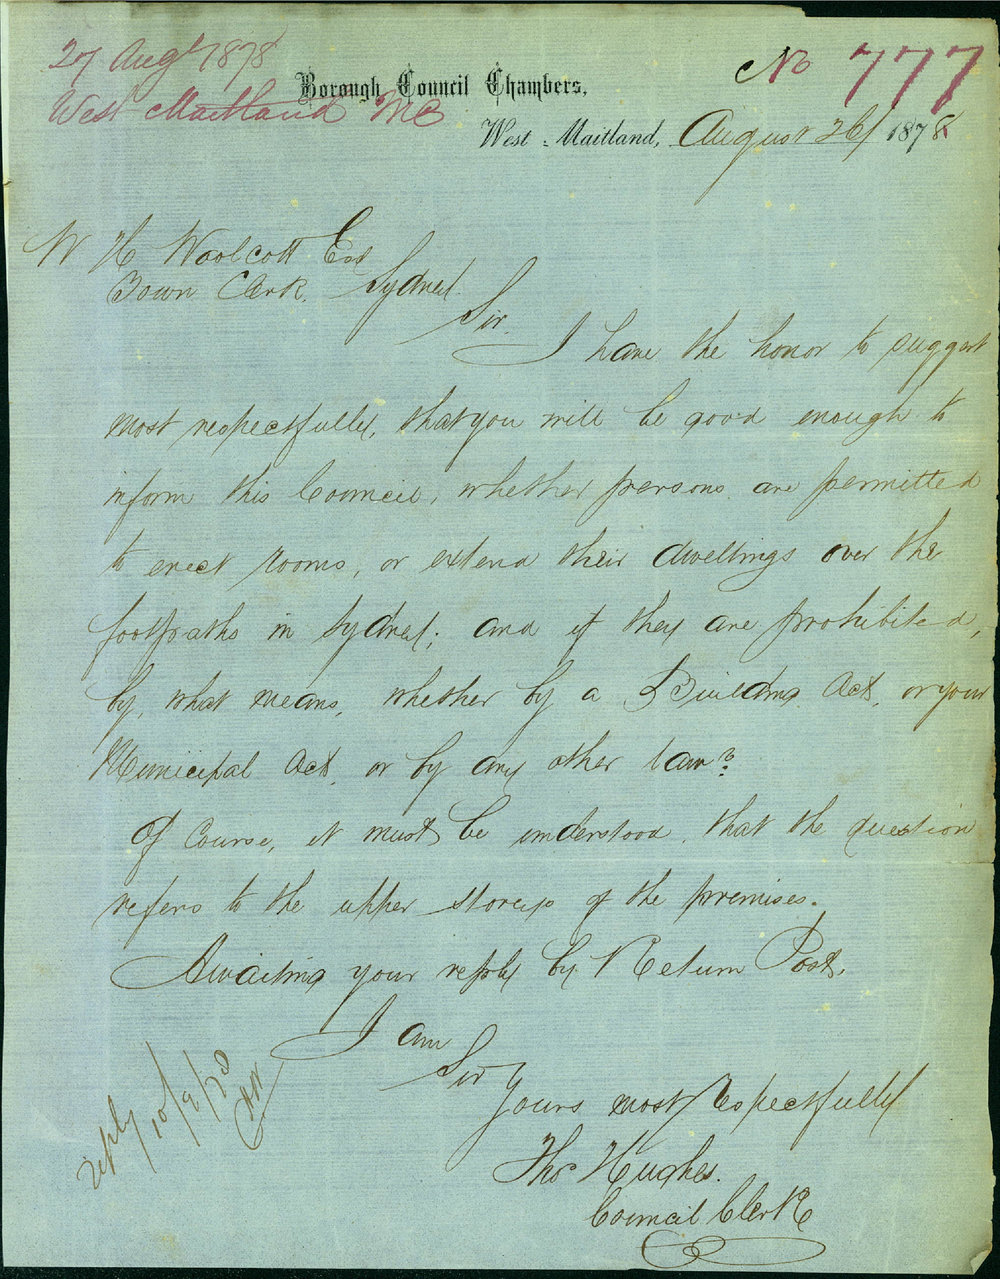 27 Augt 1878
West Maitland MC
No 777
Borough Council Chambers,
West Maitland, August 26/ 1878
W H Woolcott Esq
Town Clerk, Sydney.
Sir,
I have the honor to suggest
most respectfully, that you will be good enough to
inform this Council, whether persons are permitted
to erect rooms, or extend their dwellings over the
footpaths in Sydney; and if they are prohibited,
by what means, whether by a Building Act, or your
Municipal Act, or by any other law?
Of Course, it must be understood, that the question
refers to the upper storeys of the premises.
Awaiting your reply by Return Post,
I am
Sir
Yours most Respectfully
Thos Hughes.
Council Clerk
reply 10/9/78